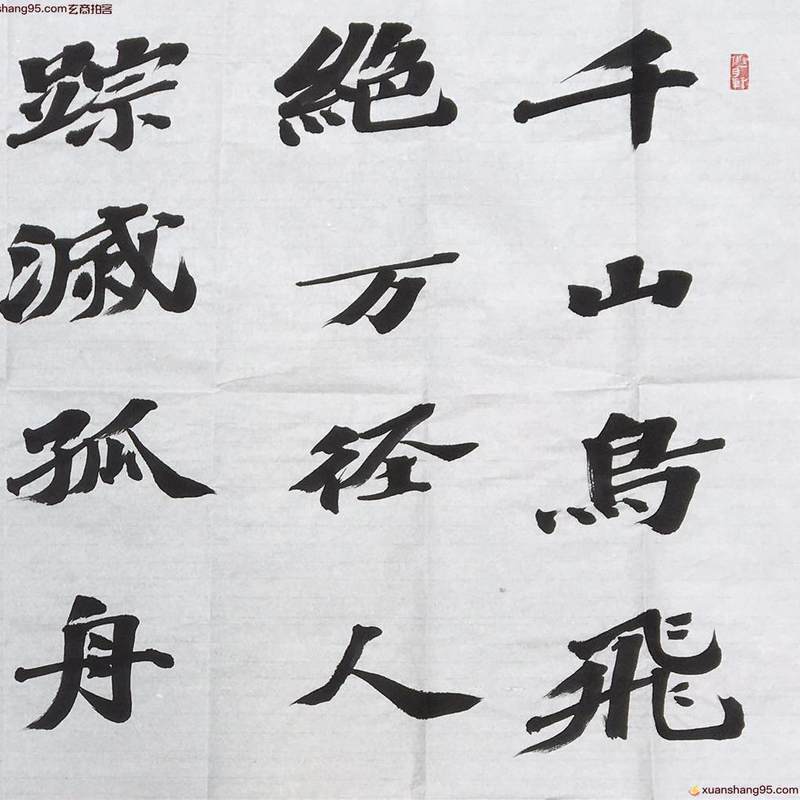 千山鸟飛
絶万径人
踪滅孤舟
shang95.com玄商拍客
xuanshang95.com